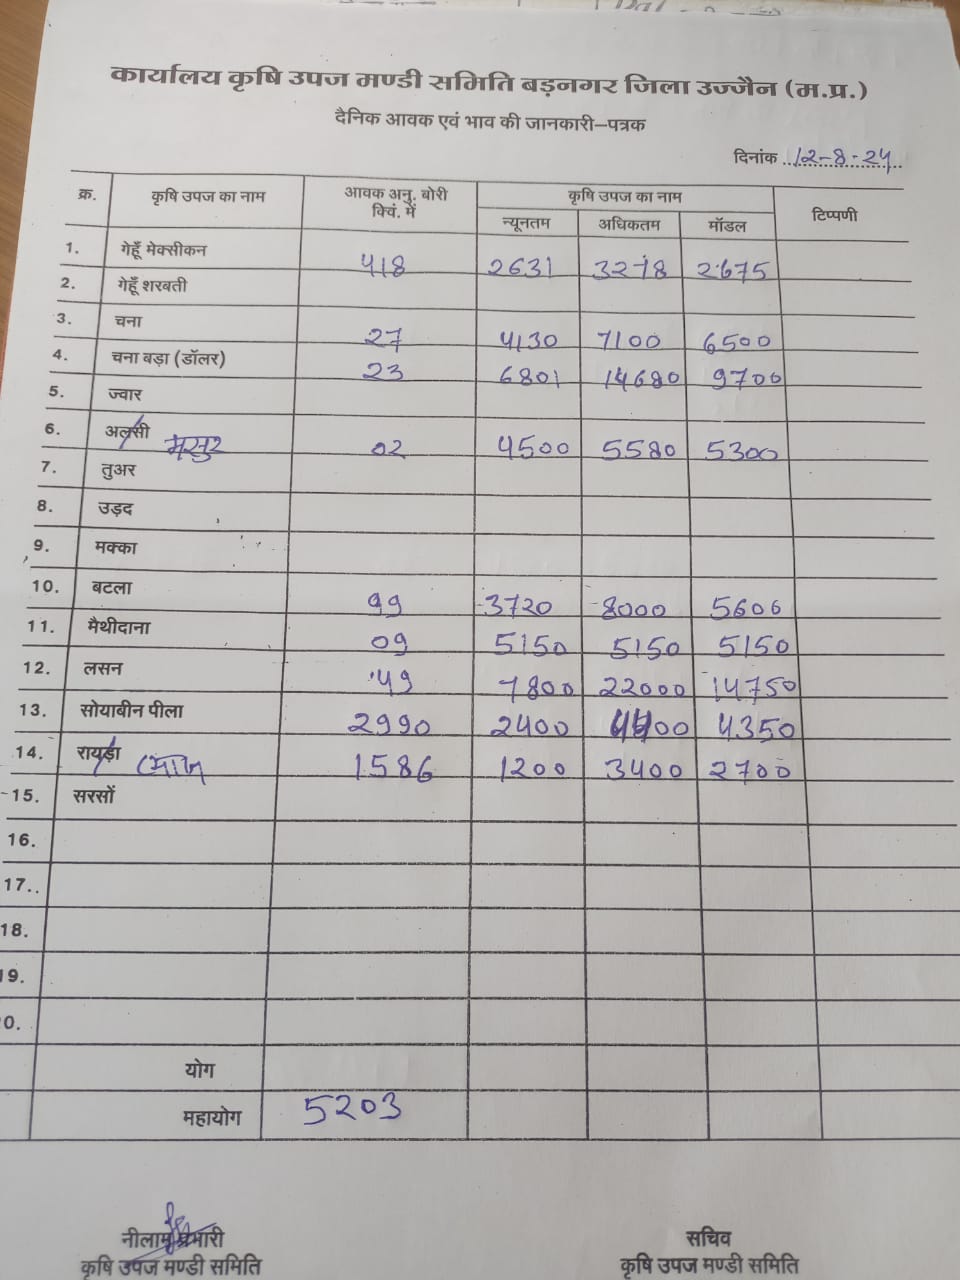 कार्यालय कृषि उपज मण्डी समिति बड़नगर जिला उज्जैन (म.प्र.)
दैनिक आवक एवं भाव की जानकारी–पत्रक
दिनांक 12-8-24
क्र. कृषि उपज का नाम आवक अनु. बोरी क्विं. में कृषि उपज का नाम टिप्पणी
न्यूनतम अधिकतम मॉडल
1. गेहूँ मेक्सीकन 418 2631 3278 2675
2. गेहूँ शरबती
3. चना 27 4130 7100 6500
4. चना बड़ा (डॉलर) 23 6801 14680 9700
5. ज्वार
6. अलसी मसुर 02 4500 5580 5300
7. तुअर
8. उड़द
9. मक्का
10. बटला 99 3720 8000 5606
11. मैथीदाना 09 5150 5150 5150
12. लसन 49 7800 22000 14750
13. सोयाबीन पीला 2990 2400 4400 4350
14. रायड़ा 1586 1200 3400 2700
15. सरसों
16.
17..
18.
19.
0.
योग
महायोग 5203
नीलाम प्रभारी सचिव
कृषि उपज मण्डी समिति कृषि उपज मण्डी समिति